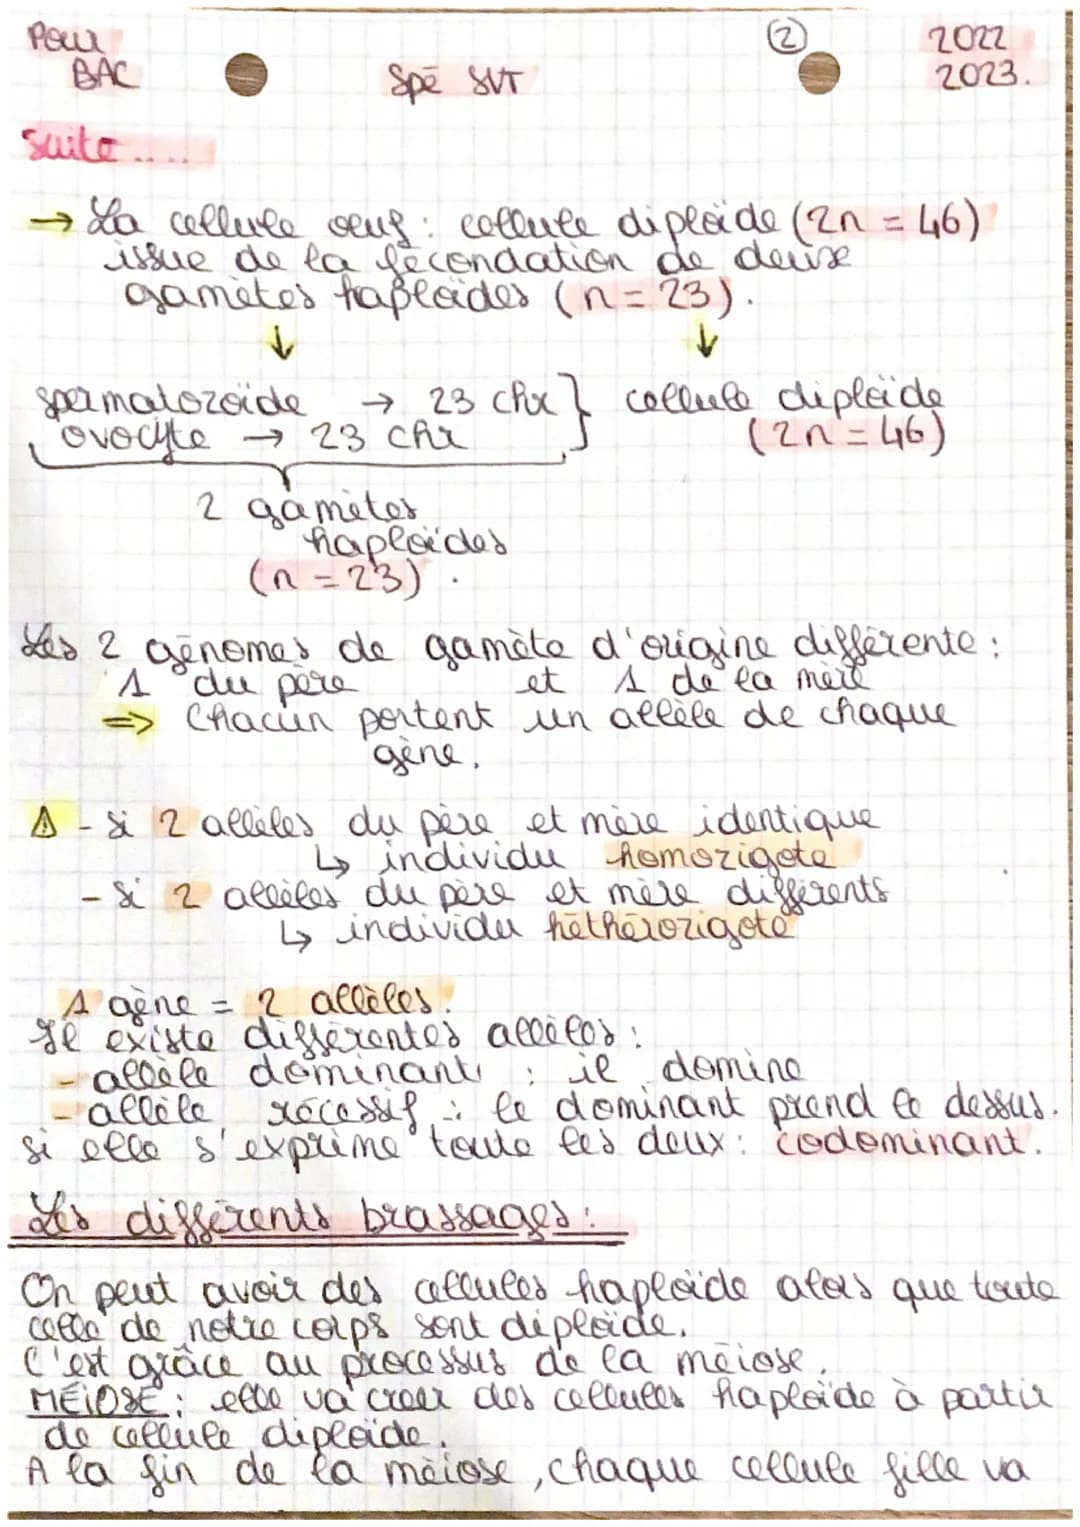 Pour
BAC
Spé SVT
2
2022
2023.
suite.....
→ La cellule oeuf : cellule diploïde (2n = 46)
issue de la fécondation de deux
gamètes haploïdes (n = 23).
↓ ↓
spermatozoïde → 23 chr } cellule diploïde
ovocyte → 23 chr (2n = 46)
2 gamètes
haploïdes
(n = 23).
Les 2 génomes de gamète d'origine différente :
1 du père et 1 de la mère
⇒ Chacun portent un allèle de chaque
gène.
⚠ - si 2 allèles du père et mère identique
↳ individu homozigote
- si 2 allèles du père et mère différents
↳ individu héthérozigote
1 gène = 2 allèles.
Il existe différentes allèles :
- allèle dominant : il domine
- allèle récessif : le dominant prend le dessus.
si elle s'exprime toute les deux : codominant.
Les différents brassages :
On peut avoir des cellules haploïde alors que toute
celle de notre corps sont diploïde.
C'est grâce au processus de la méiose.
MÉIOSE : elle va créer des cellules haploïde à partir
de cellule diploïde.
A la fin de la méiose, chaque cellule fille va